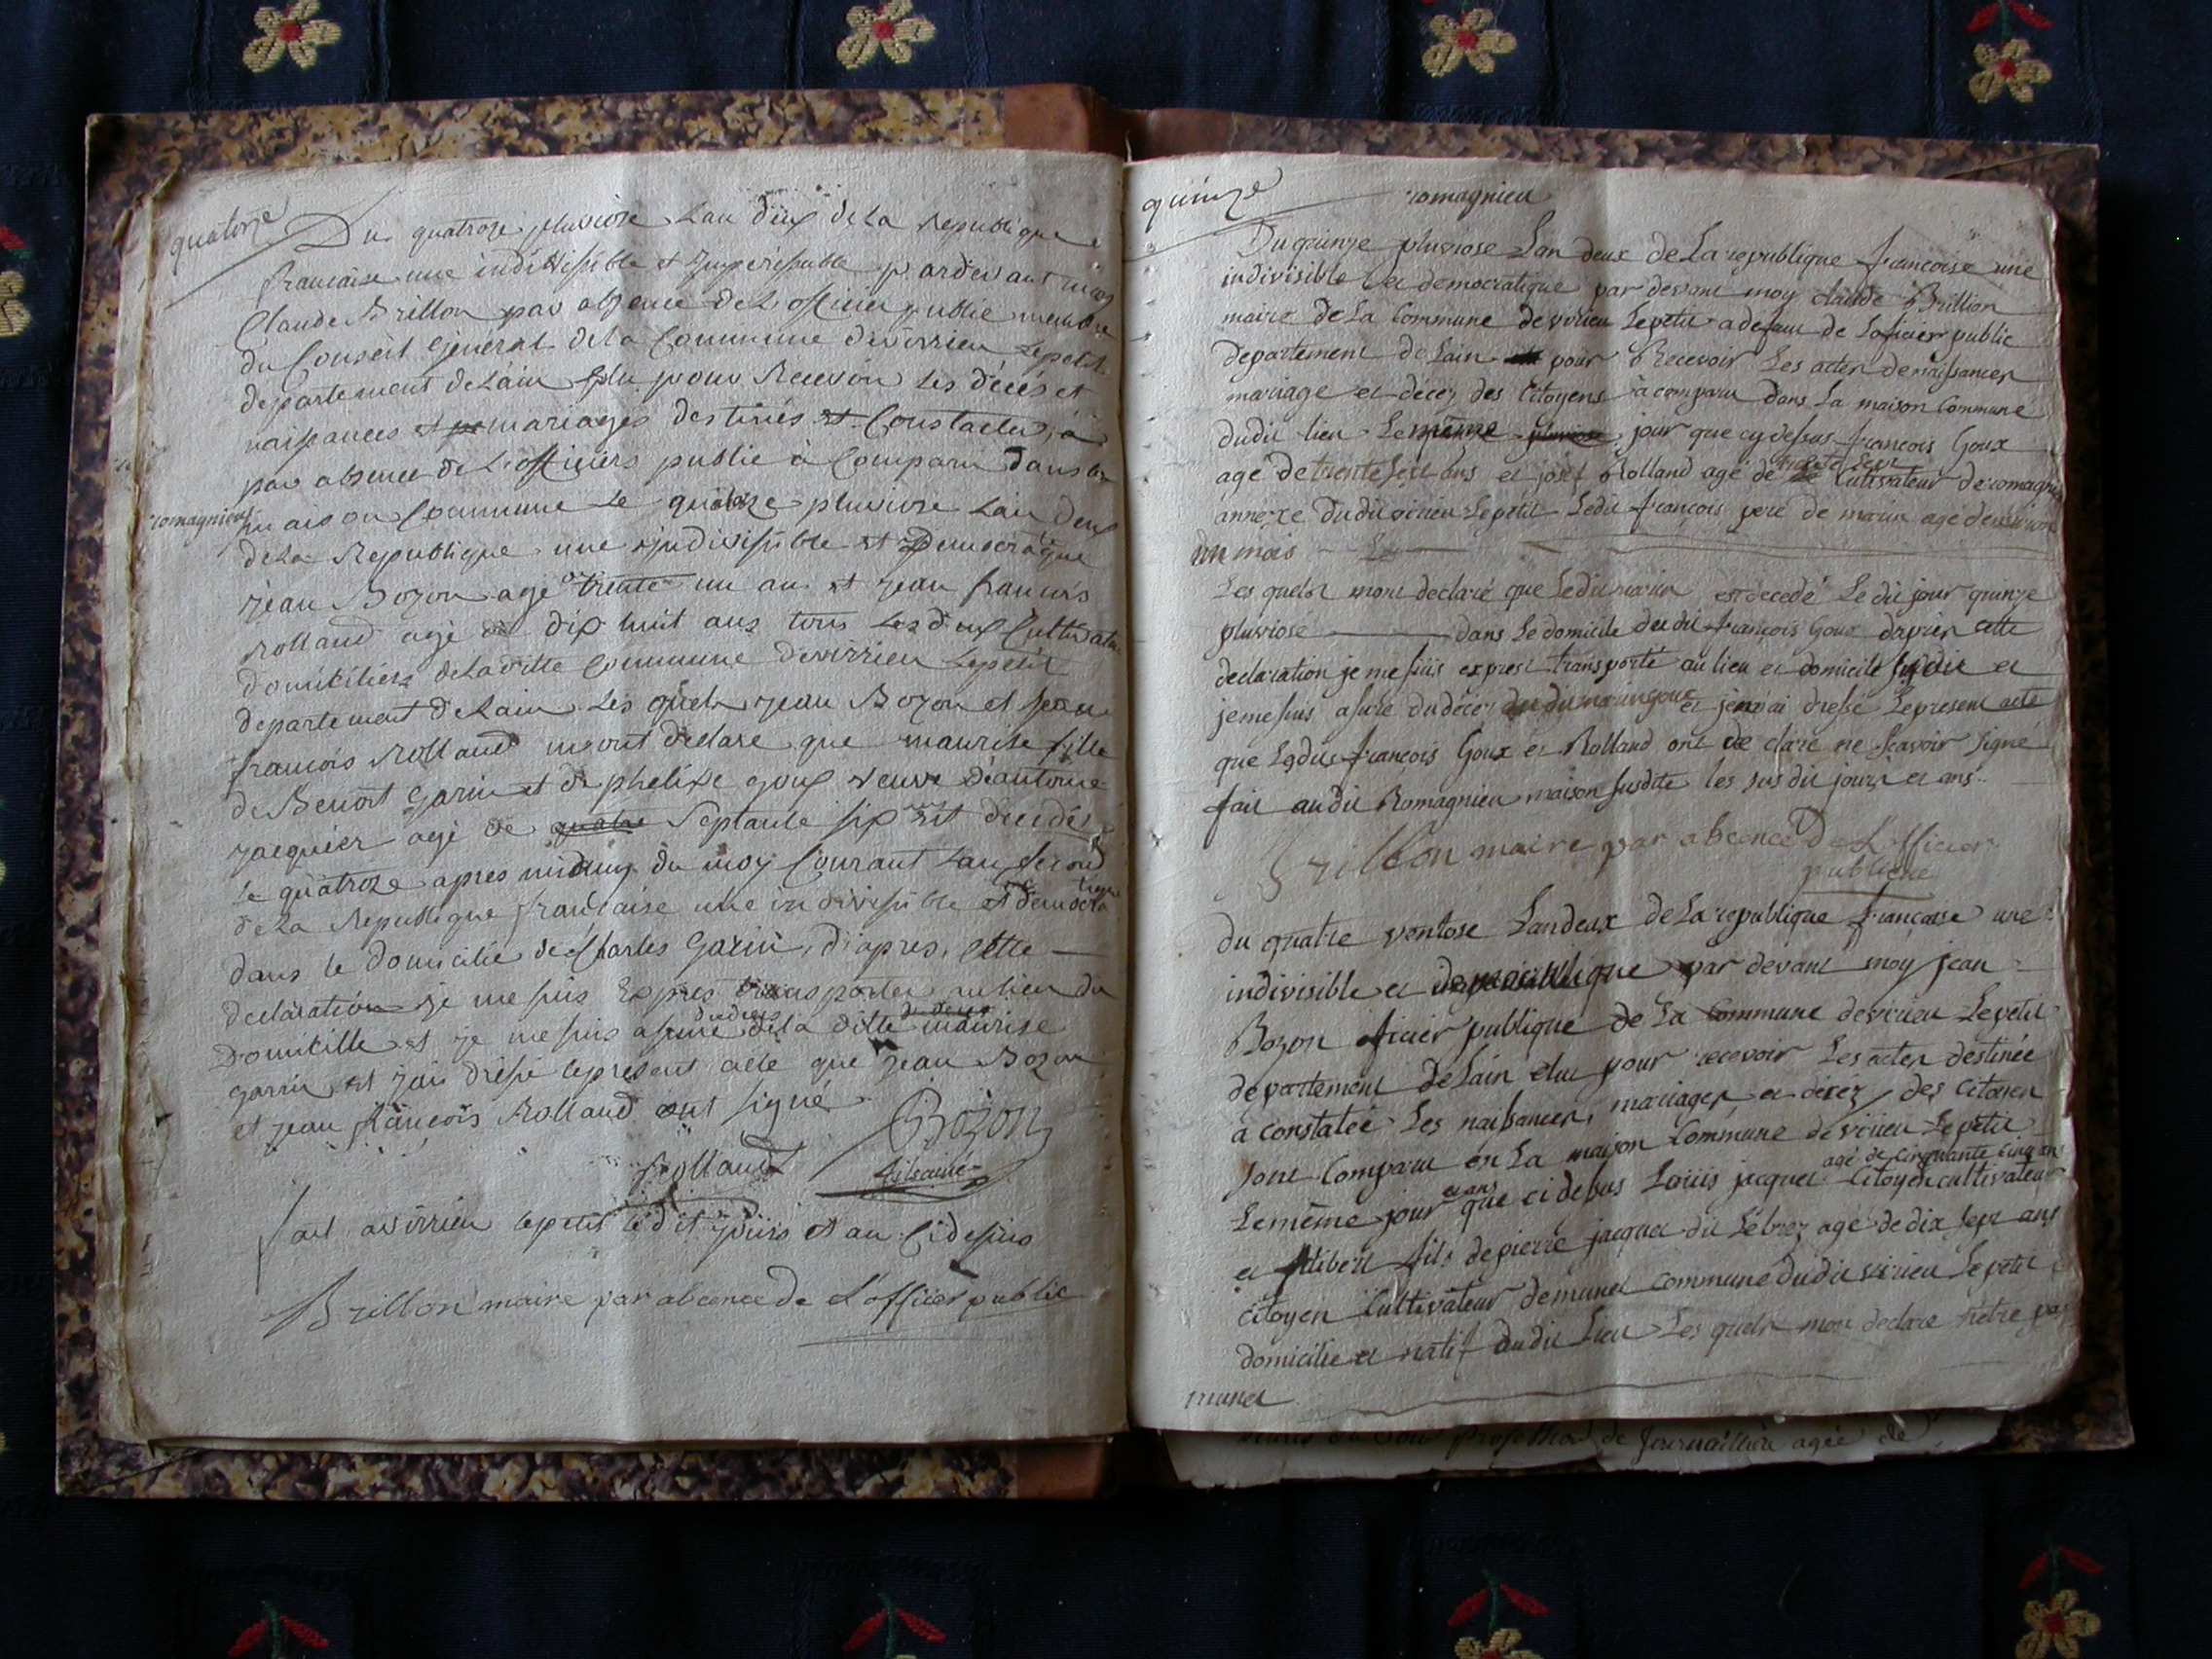 quatorze
Du quatroze pluviose Lan deux de La Republique
francaise une indivisible et Imperissable pardevant moy
Claude Brillon par absence de L'officier public membre
du Conseil general de la Commune de virrieu Lepetit
departement de L'ain Elu pour Recevoir les décés et
naissances et mariages destinés et Constacter, à
par absence de L'officiers public à Comparu dans la
romagnieu
maison Commune Le quatorze pluviose Lan deux
de La Republique une indivisible et Democratique
jean Bozon agé trente un an et jean francois
Rolland agé de dix huit ans tous Les deux Cultivateur
domiciliers de La ditte Commune de virrieu Lepetit
departement de Lain Les quels jean Bozon et jean
francois Rolland mont declaré que maurise fille
de Benoit Garin et de phelise goux veuve de antoine
jacquier agé de quatre Septante six ans est decedé
le quatroze apres miduy du moy Courant Lan second
de La Republique francaise une indivisible et democratique
dans le domicilie de Charles Garin, d'apres, cette
declaration je me suis Expres transporter au lieu du
Domicille et je me suis asuré du deces de la ditte maurise
garin et jai drésé le present acte que jean Bozon
et jean francois Rolland ont signé
Bozon
Rolland fils ainé
fait a virrieu lepetit le dit jours et an Cidesus
Brillon maire par absence de L'officier public
quinze
romagnieu
Du quinze pluviose Lan deux de La republique francoise une
indivisible et democratique par devant moy claude Brillion
maire de La Commune de virieu Lepetit a defaut de Loficier public
departement de Lain pour Recevoir Les actes de naissances
mariage et décez des Citoyens à comparu dans La maison Commune
dudit lieu Le même pluviose jour que cy dessus francois Goux
agé de trente sept ans et josef Rolland agé de trente sept Cultivateur de romagnieu
annexe dudit virieu Lepetit Ledit francois pere de marin agé d'environ
un mois
Les quels mont declaré que Ledit marin est décedé Le dit jour quinze
pluviose dans Le domicile du dit francois Goux daprier cette
declaration je me suis expres transporté au lieu et domicile susdit et
je me suis asuré du décez du dit marin goux et jen ai dressé Le present acte
que Lesdits francois Goux et Rolland ont de claré ne scavoir signé
fait au dit Romagnieu maison susdite les sus dit jours et ans
Brillon maire par abcence De L'officier
publique
du quatre ventose Landeux de La republique francaise une
indivisible et democratique par devant moy jean
Bozon oficier publique de La Commune de virieu Lepetit
departement de Lain elu pour recevoir Les actes destinée
a constatée Les naissances, mariages et décez des Citoyen
sont Comparu en La maison Commune de virieu Lepetit
Le même jour et ans que ci dessus Louis jacquet agé de cinquante cinq an Citoyen cultivateur
et filibert fils de pierre jacquet dit agé de dix sept ans
Citoyen Cultivateur de munet commune dudit virieu Lepetit
domicilie et natif dudit Lieu Les quels mont declaré
munet
profession de agée de